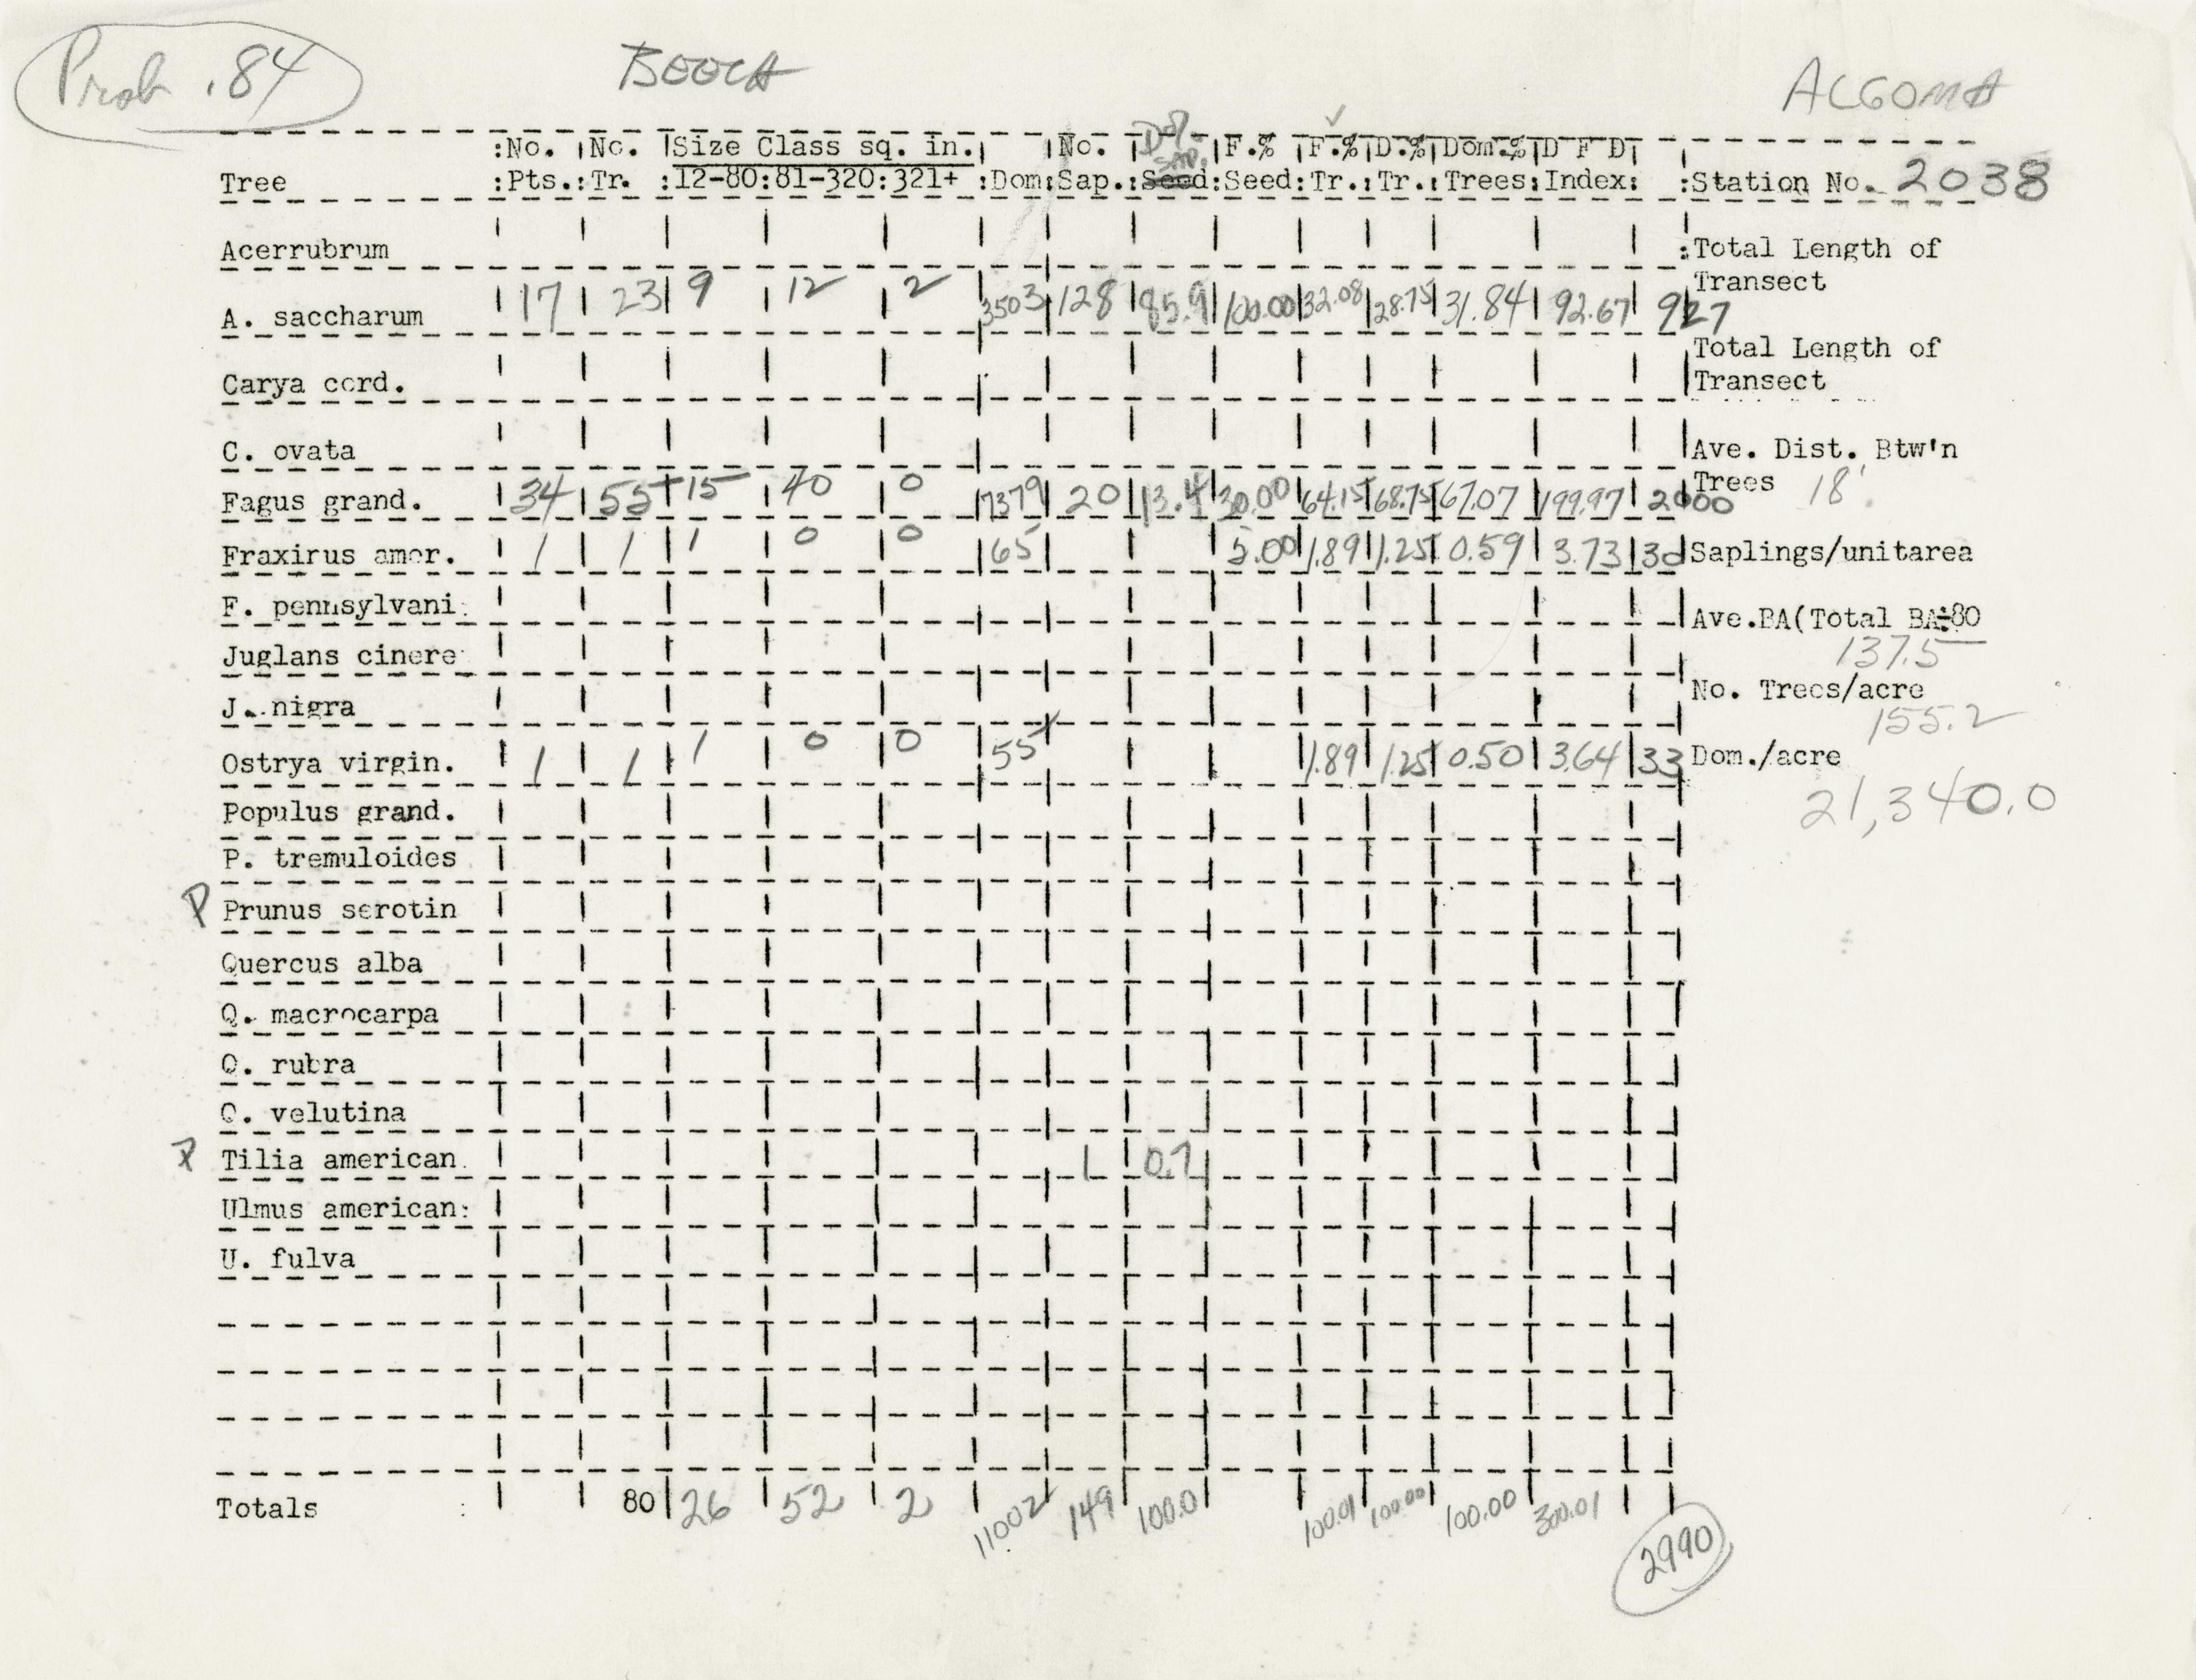 Prob .84
BEECH
ALGOMA
:No. :No. Size Class sq. in. No. D% F.% F.% D.% Dom.% D F D
Tree :Pts.:Tr. :12-80:81-320:321+ :Dom:Sap.: SAP. Seed:Seed:Tr.:Tr.:Trees:Index: :Station No. 2038
Acerrubrum :Total Length of
Transect
A. saccharum 17 23 9 12 2 3503 128 85.9 100.00 32.08 28.75 31.84 92.67 927
Total Length of
Carya cord. Transect
C. ovata Ave. Dist. Btw'n
Trees 18'
Fagus grand. 34 55 15 40 0 7379 20 13.4 30.00 64.15 68.75 67.07 199.97 2000
Fraxirus amer. 1 1 1 0 0 65 5.00 1.89 1.25 0.59 3.73 30 Saplings/unitarea
F. pennsylvani. Ave.BA(Total BA÷80
137.5
Juglans cinere
J. nigra No. Trees/acre
155.2
Ostrya virgin. 1 1 1 0 0 55 1.89 1.25 0.50 3.64 33 Dom./acre
21,340.0
Populus grand.
P. tremuloides
P Prunus serotin
Quercus alba
Q. macrocarpa
Q. rubra
Q. velutina
P Tilia american. 1 0.7
Ulmus american:
U. fulva
Totals : 80 26 52 2 11002 149 100.0 100.01 100.00 100.00 300.01 2990